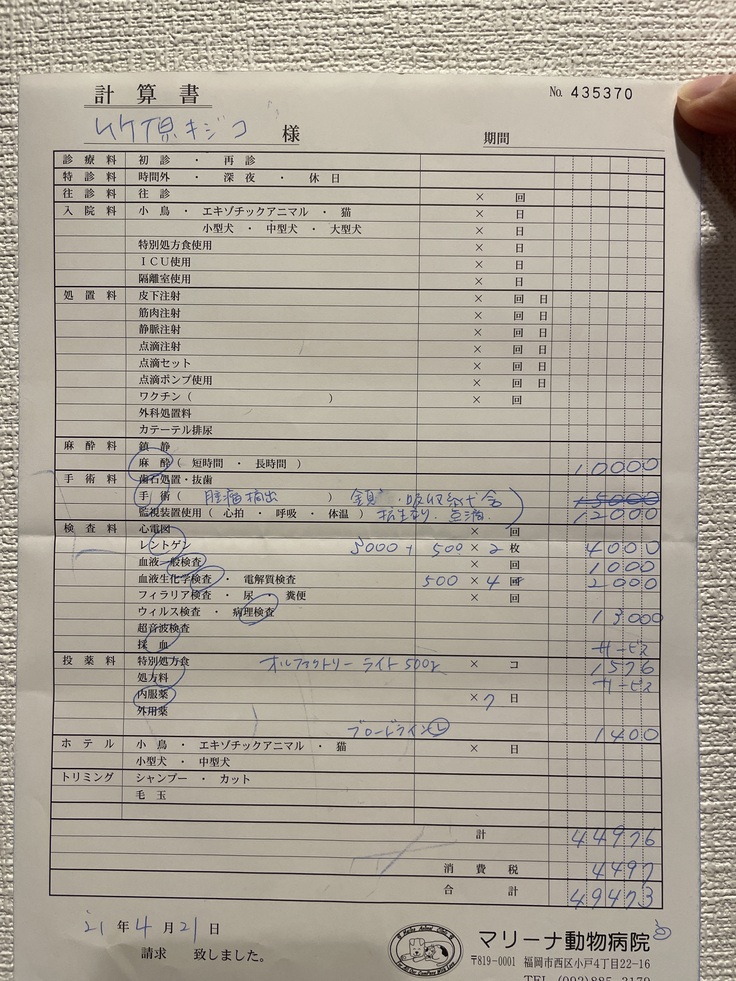 計算書
No. 435370
竹原キジコ 様
期間
診療料 初診 ・ 再診
特診料 時間外 ・ 深夜 ・ 休日
往診料 往診 × 回
入院料 小鳥 ・ エキゾチックアニマル ・ 猫 × 日
小型犬 ・ 中型犬 ・ 大型犬 × 日
特別処方食使用 × 日
ICU使用 × 日
隔離室使用 × 日
処置料 皮下注射 × 回 日
筋肉注射 × 回 日
静脈注射 × 回 日
点滴注射 × 回 日
点滴セット × 回 日
点滴ポンプ使用 × 回 日
ワクチン( ) × 回
外科処置料
カテーテル排尿
麻酔料 鎮静
麻酔( 短時間 ・ 長時間 ) 10000
手術料 歯石処置・抜歯
手術( 腫瘤摘出 ) ・吸収糸代含 15000
監視装置使用( 心拍 ・ 呼吸 ・ 体温 ) 点滴 12000
検査料 心電図 × 回
レントゲン 3000+ 500×2枚 4000
血液一般検査 × 回 1000
血液生化学検査 ・ 電解質検査 500×4回 2000
フィラリア検査 ・ 尿 ・ 糞便 × 回
ウィルス検査 ・ 病理検査 13000
超音波検査
採血 サービス
投薬料 特別処方食 オルファクトリー ライト500g × コ 1576
処方料 サービス
内服薬 ×7日
外用薬
ブロードラインⓁ 1400
ホテル 小鳥 ・ エキゾチックアニマル ・ 猫 × 日
小型犬 ・ 中型犬
トリミング シャンプー ・ カット
毛玉
計 44976
消費税 4497
合計 49473
21年4月21日
請求 致しました。
マリーナ動物病院
〒819-0001 福岡市西区小戸4丁目22-16